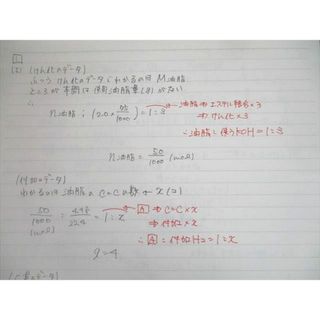 1
(2) (けん化のデータ)
ふつう けん化のデータ でわかるのは M油脂
ところが 本問は 使用油脂量(g)がない
∴
n油脂 : (2.0 × /1000) = 1:3 → 油脂 ⇒ エステル結合×3
⇒ けん化×3
∴ 油脂 : 使うKOH = 1:3
n油脂 = 50/1000 (mol)
(付加のデータ)
わかるのは 油脂の C=Cの数
50/1000 : 4.48/22.4 = 1:x → A ⇒ C=C × x
(mol) ⇒ 付加 × x
∴ A : 付加H₂ = 1:x
x=4